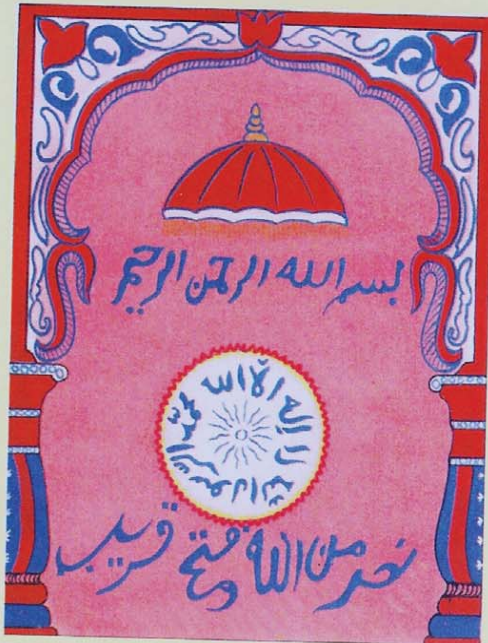 بسم الله الرحمن الرحيم
لا إله إلا الله محمد الرسول الله
نصر من الله وفتح قريب